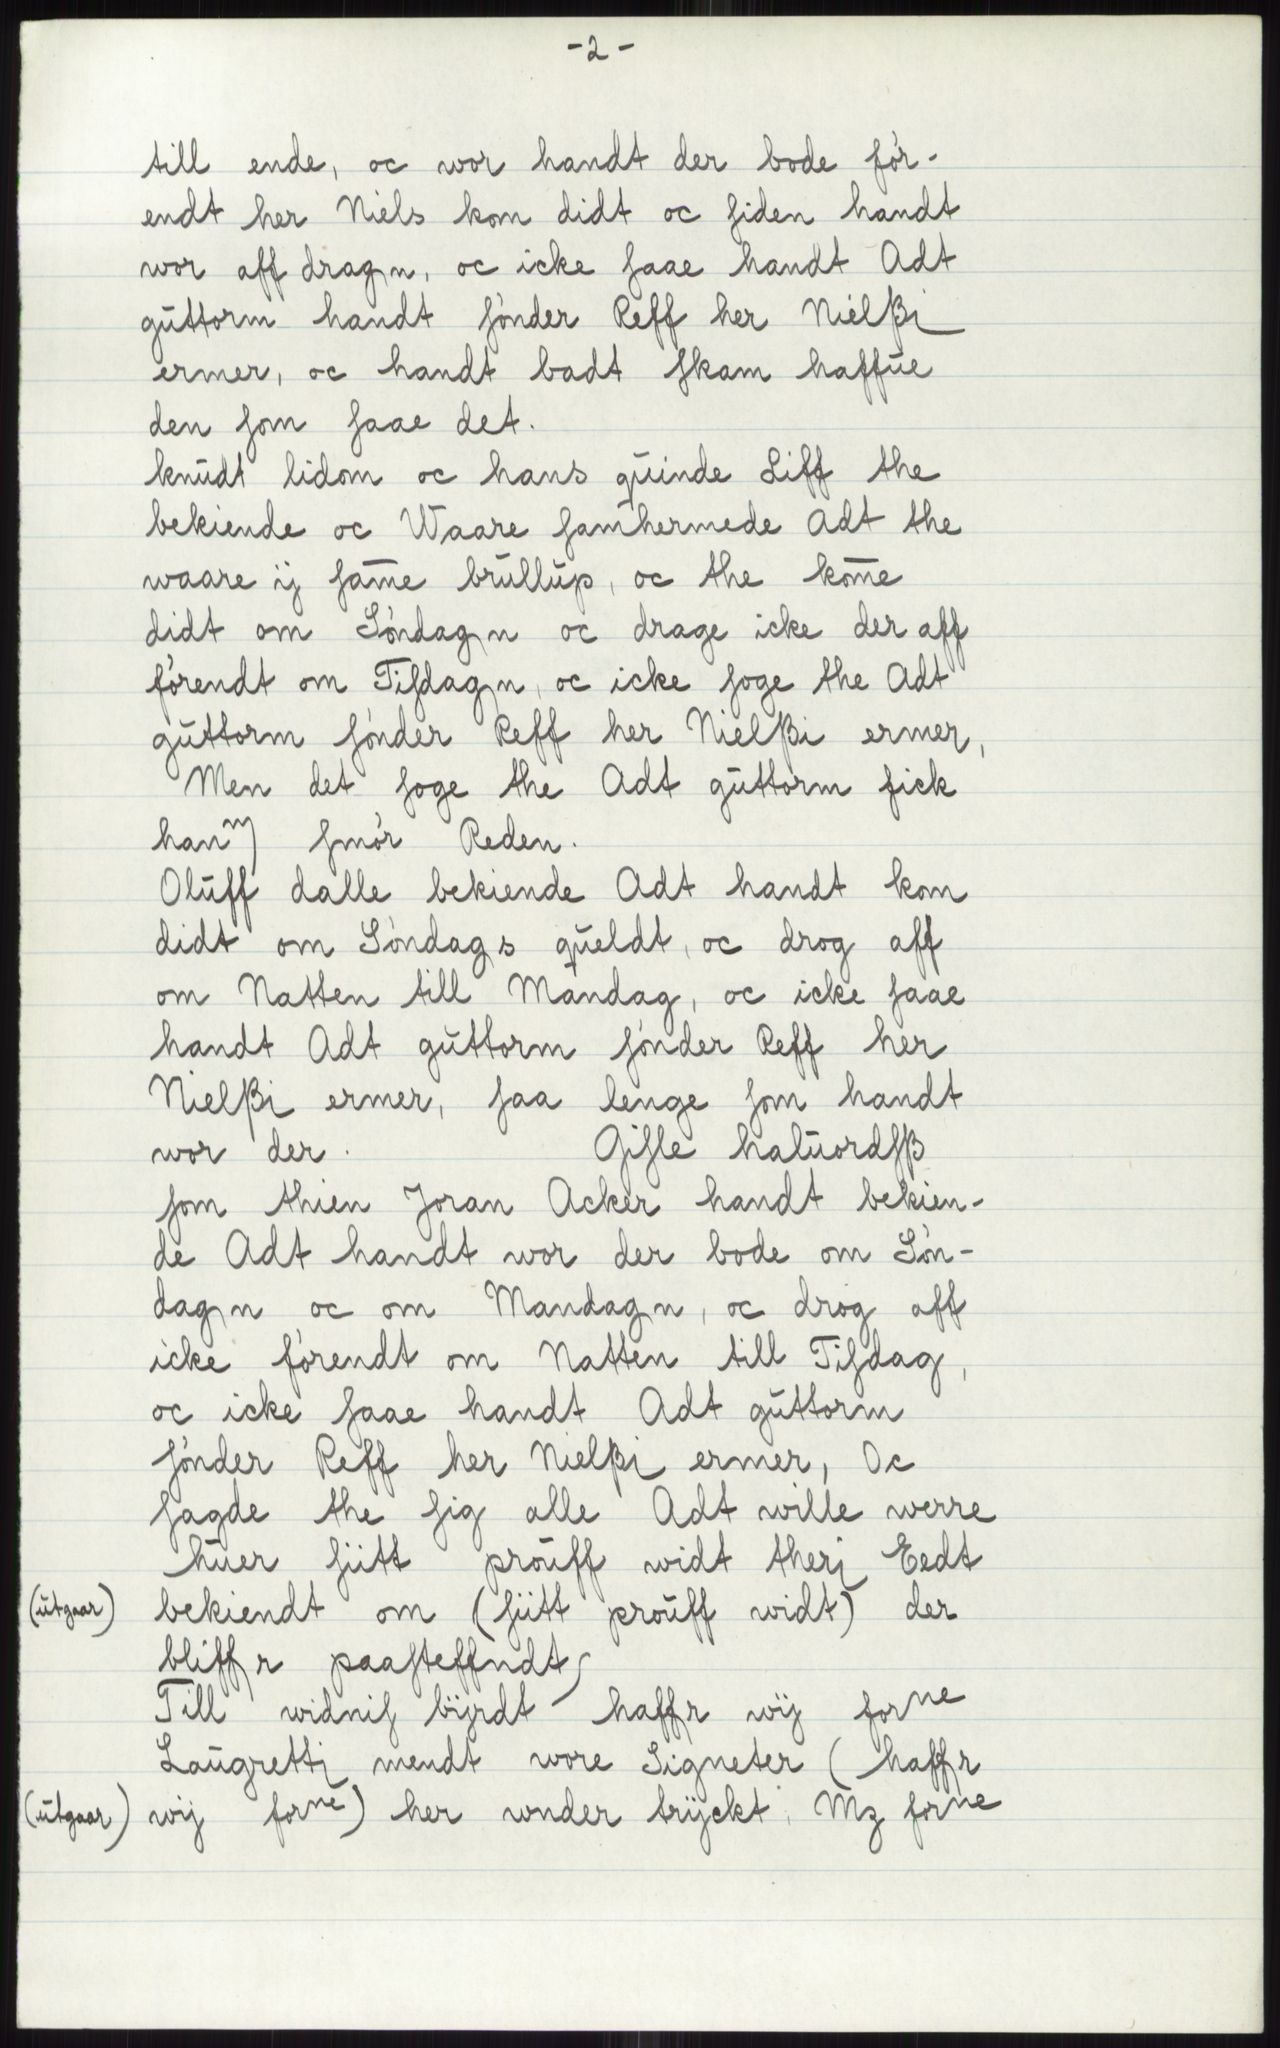 -2-
till ende, oc wor handt der bode för-
endt her Niels kom didt oc ſiden handt
wor aff dragn, oc icke ſaae handt Adt
gūttorm handt ſönder Reff her Nielßi
ermer, oc handt badt ſkam haffūe
den ſom ſaae det.
knūdt lidom oc hans qūinde Siff the
bekiende oc Waare ſamhermede Adt the
waare ij ſam̄e brūllūp, oc the kom̄e
didt om Söndagn oc drage icke der aff
förendt om Tiſdagn, oc icke ſoge the Adt
gūttorm ſönder Reff her Nielßi ermer,
Men det ſoge the Adt gūttorm fick
hanm ſmör Reden.
Olūff dalle bekiende Adt handt kom
didt om Söndags qūeldt, oc drog aff
om Natten till Mandag, oc icke ſaae
handt Adt gūttorm ſönder Reff her
Nielßi ermer, ſaa lenge ſom handt
wor der. Giſle halūordſß
ſom thien Joran Acker handt bekien-
de Adt handt wor der bode om Sön-
dagn oc om Mandagn, oc drog aff
icke förendt om Natten till Tiſdag,
oc icke ſaae handt Adt gūttorm
ſönder Reff her Nielßi ermer, Oc
ſagde the ſig alle Adt wille werre
hūer ſiitt proūff widt theri Eedt
(ūtgaar) bekiendt om (ſiitt proūff widt) der
bliffr paaſteffndt
Till widniſ bÿrdt haffr wÿ forne
Laūgretti mendt wore Signeter (haffr
(ūtgaar) wij forne) her wnder trÿckt. Mz forne